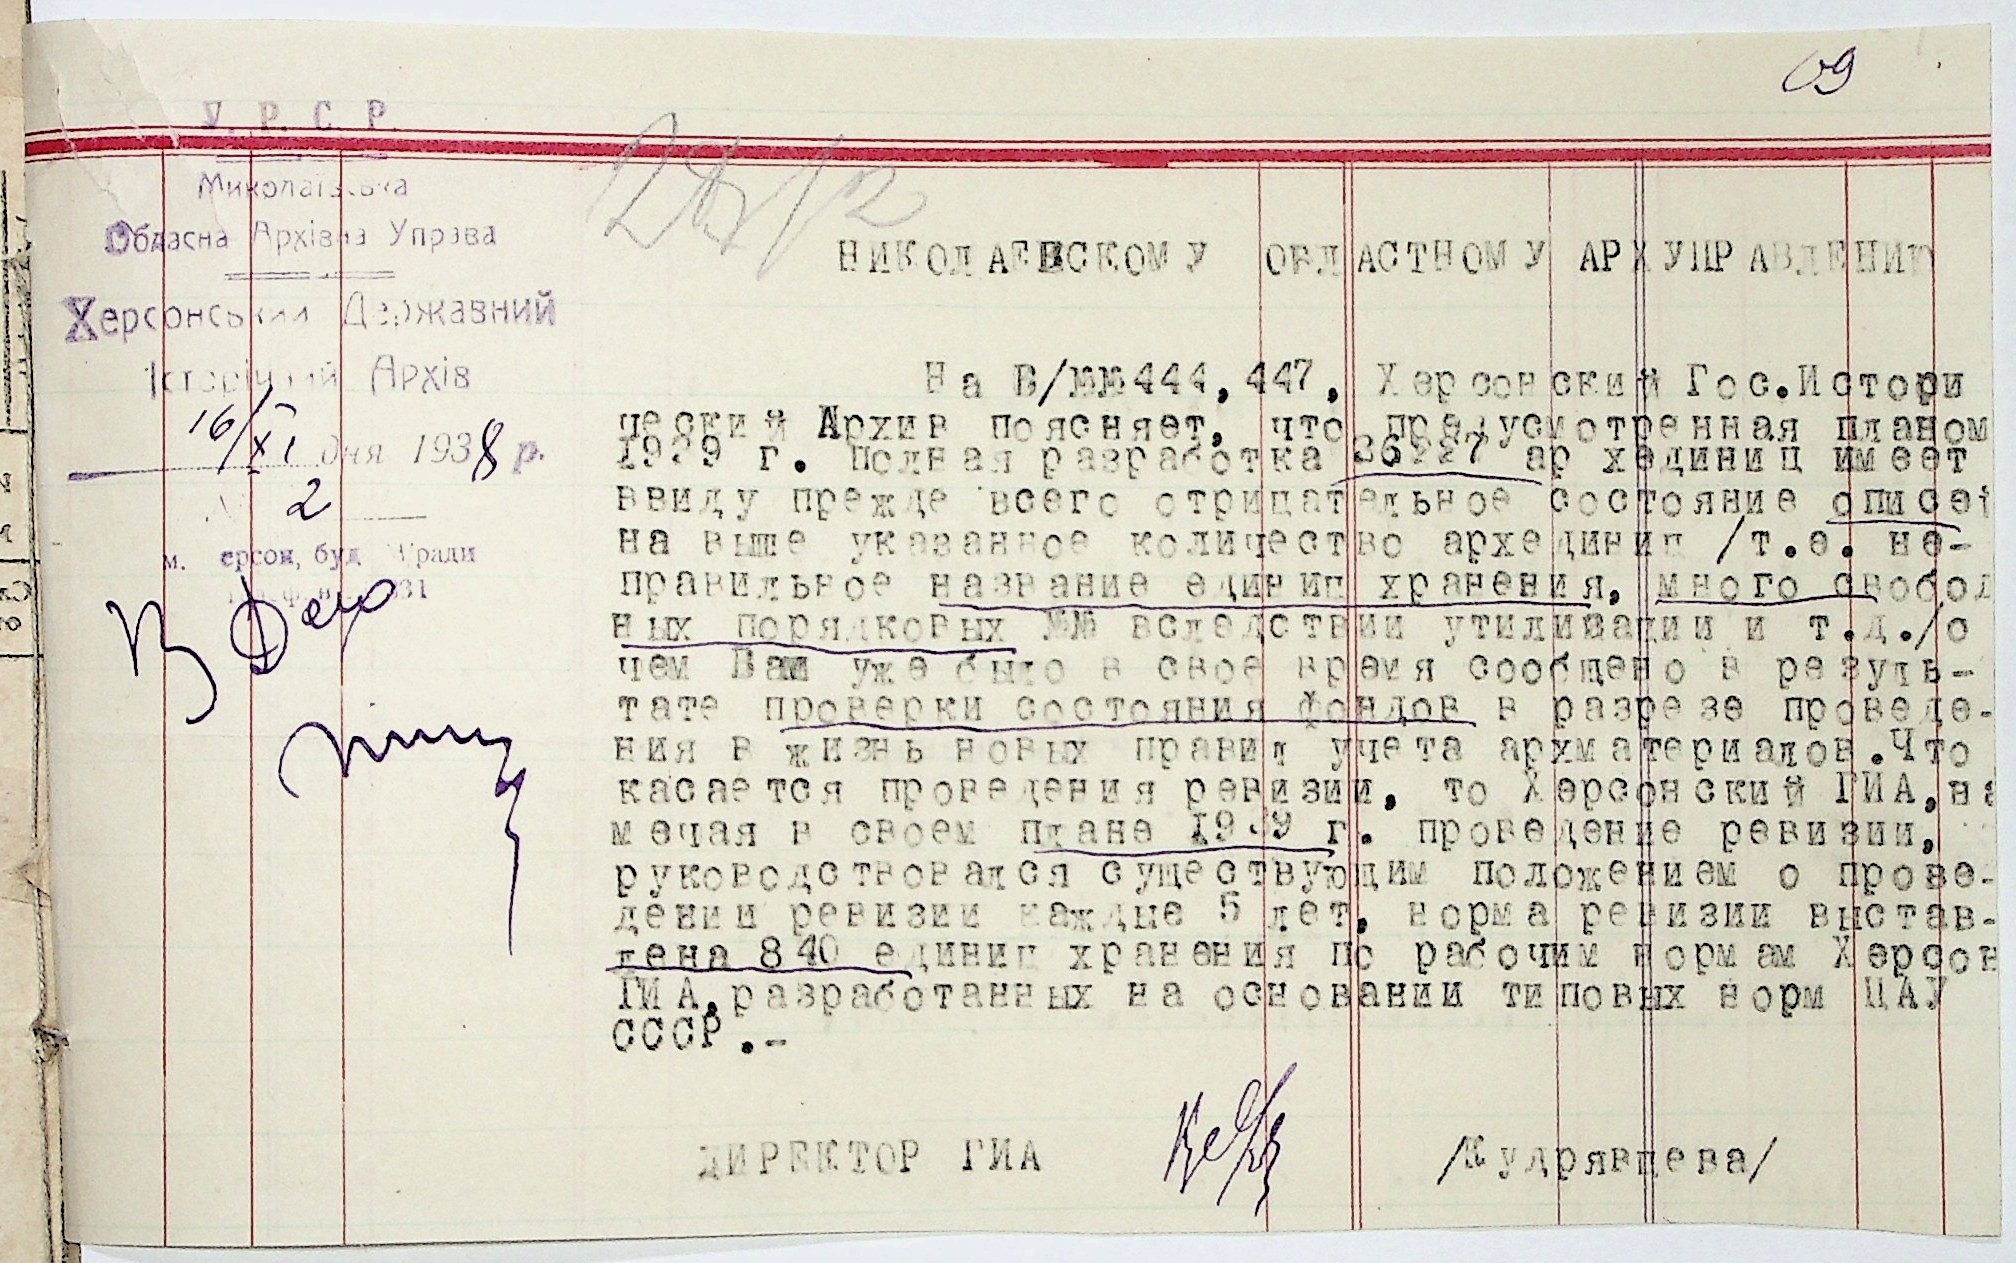 69
У. Р. С. Р.
Миколаївська
Обласна Архівна Управа
Херсонський Державний
Історічний Архів
16/XI дня 1938 р.
№ 2
м. Херсон, буд. Ради
В Дело
НИКОЛАЕВСКОМУ ОБЛАСТНОМУ АРХУПРАВЛЕНИЮ
На В/№№444,447, Херсонский Гос.Истори
ческий Архив поясняет, что предусмотренная планом
1939 г. полная разработка 36227 архединиц имеет
ввиду прежде всего отрицательное состояние описей
на выше указанное количество архединиц /т.е. не-
правильное название единиц хранения, много свобод
ных порядковых №№ вследствии утилизации и т.д./о
чем Вам уже было в свое время сообщено в резуль-
тате проверки состояния фондов в разрезе проведе-
ния в жизнь новых правил учета архматериалов.Что
касается проведения ревизии, то Херсонский ГИА,на
мечая в своем плане 1939 г. проведение ревизии,
руководствовался существующим положением о прове-
дении ревизии каждые 5 лет, норма ревизии выстав-
лена 840 единиц хранения по рабочим нормам Херсон
ГИА,разработанных на основании типовых норм ЦАУ
СССР.-
ДИРЕКТОР ГИА /Кудрявцева/